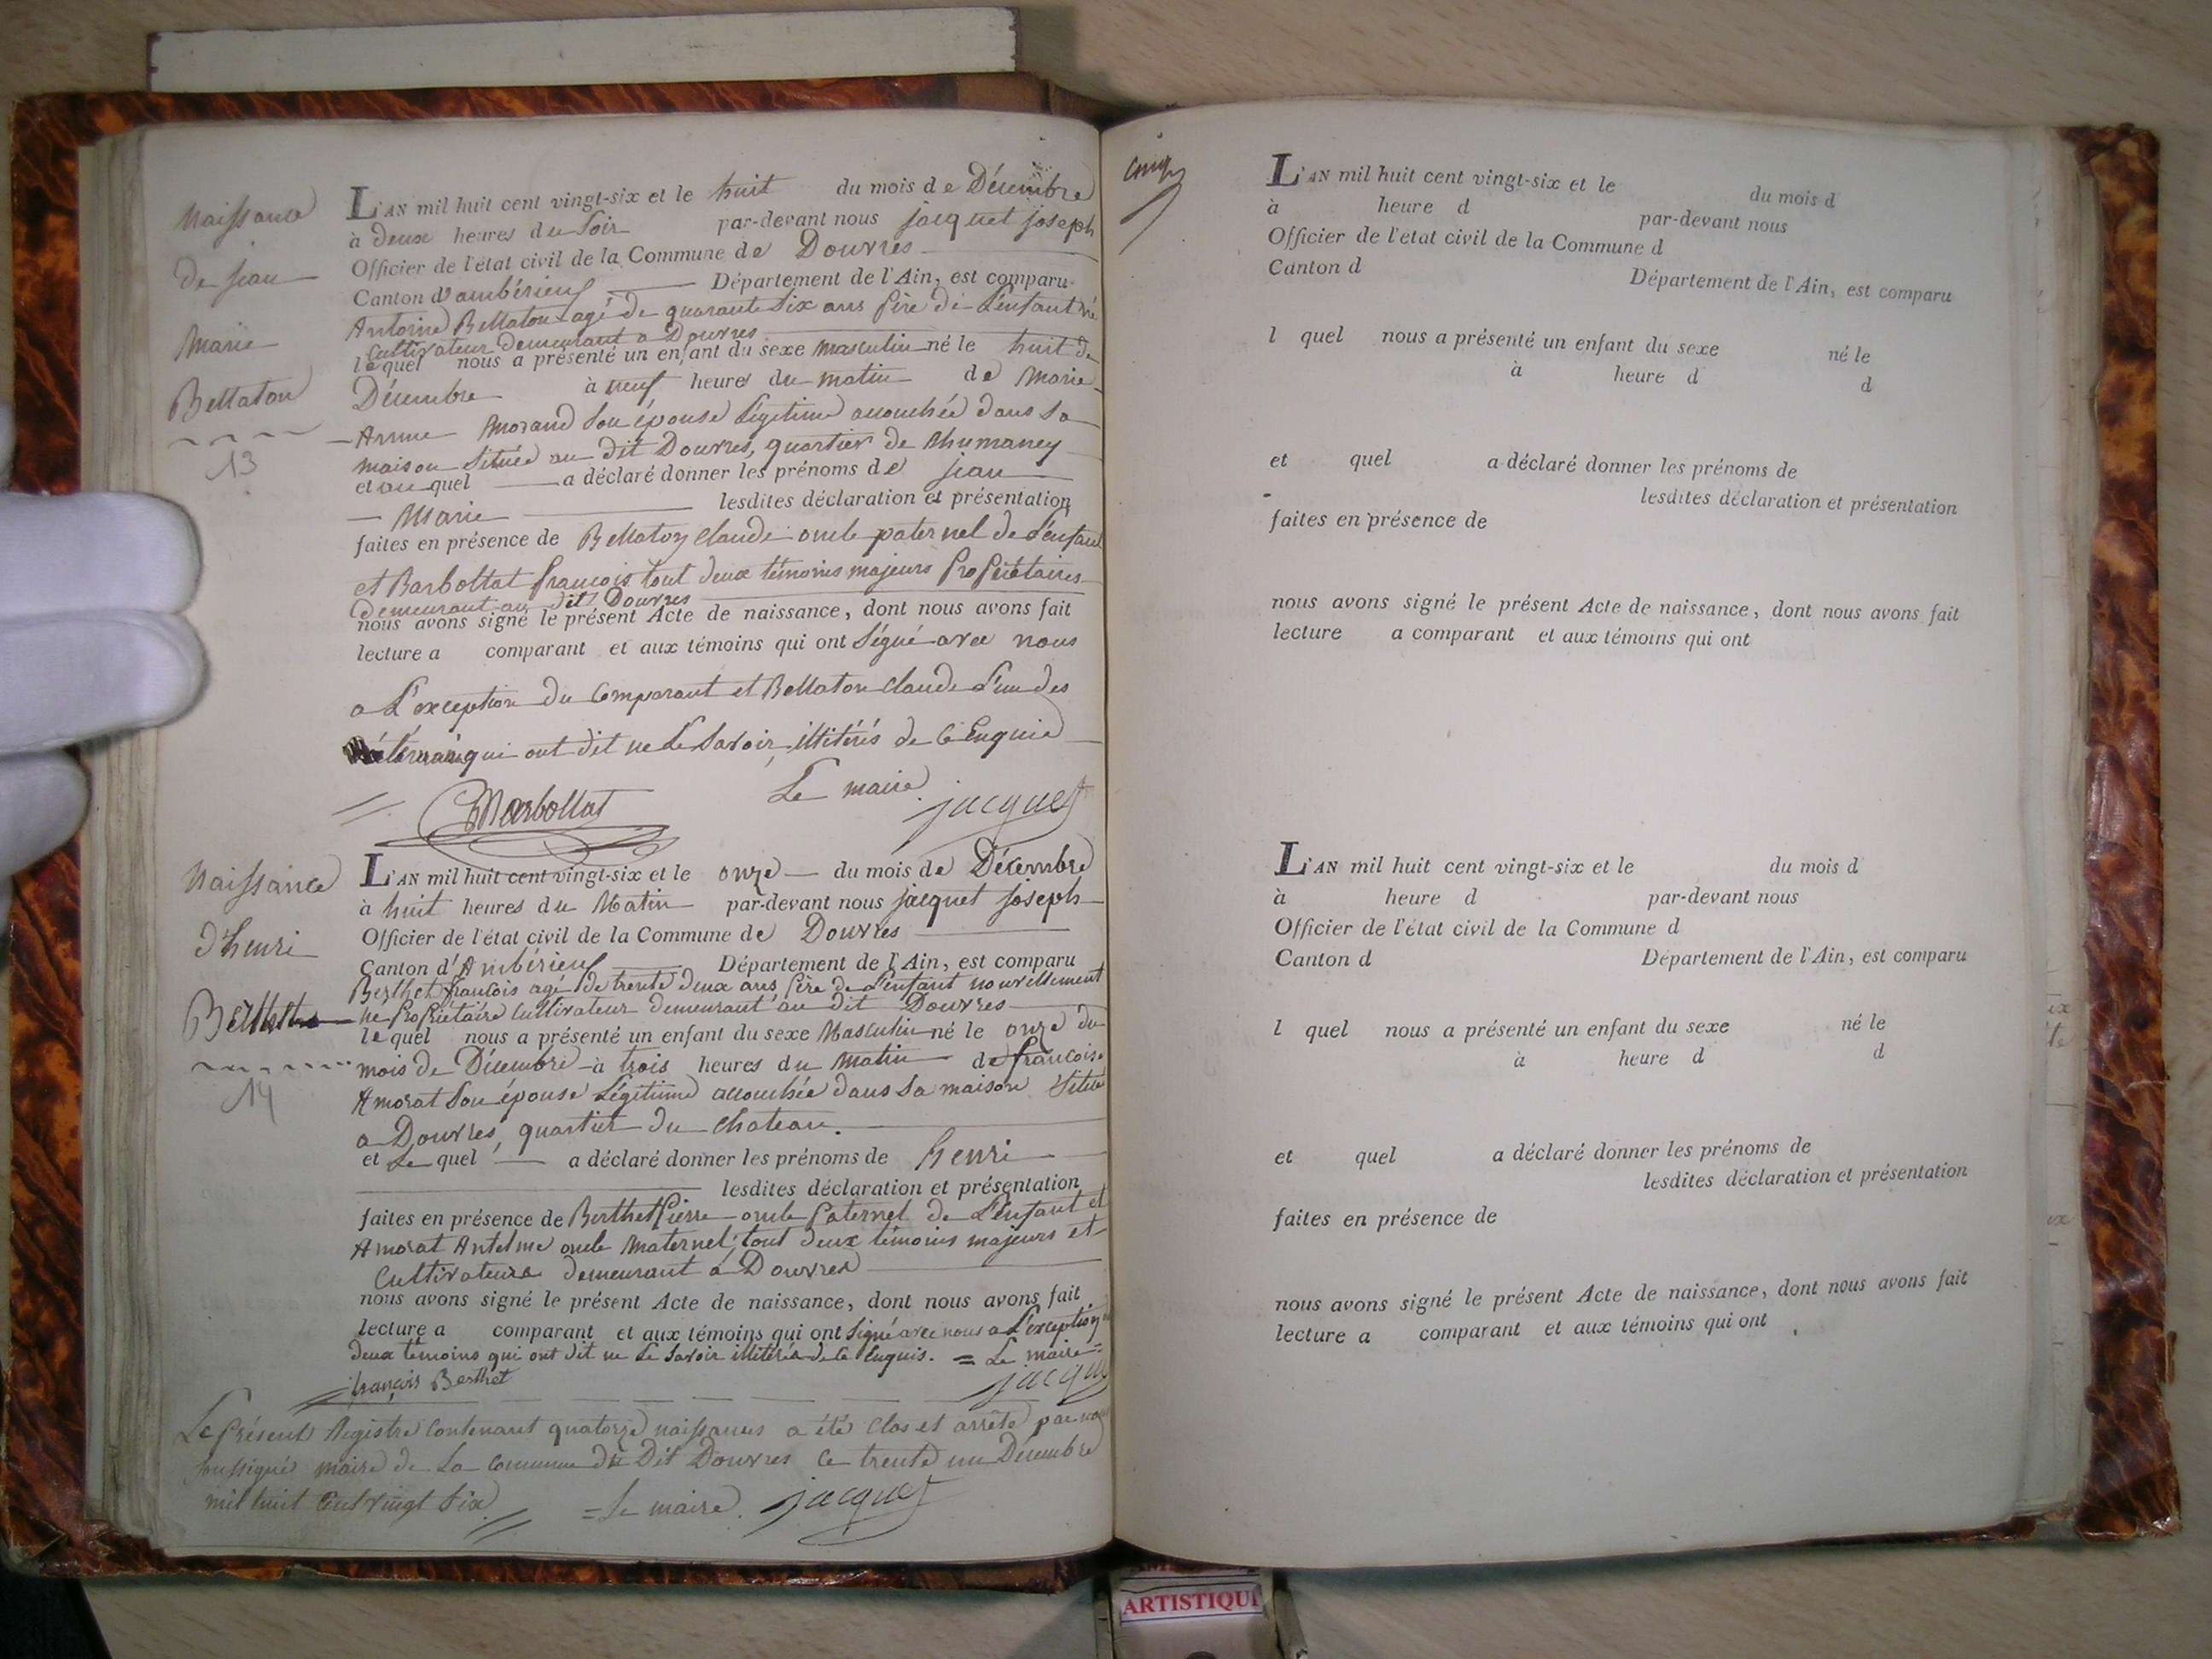 Naissance
de jean
Marie
Bellaton
13
L'AN mil huit cent vingt-six et le huit du mois de Décembre
à deux heures du Soir par-devant nous jacquet joseph
Officier de l'état civil de la Commune de Douvres
Canton d'ambérieux Département de l'Ain, est comparu
Antoine Bellaton agé de quarante Six ans Père de L'enfant né
Cultivateur demeurant a Douvres
lequel nous a présenté un enfant du sexe masculin né le huit de
Décembre à neuf heures du matin de Marie
Anne Morand Son épouse Légitime accouchée dans Sa
maison Située au dit Douvres, quartier de
et au quel a déclaré donner les prénoms de jean
Marie lesdites déclaration et présentation
faites en présence de Bellaton Claude oncle paternel de L'enfant
et Barbollat françois tout deux témoins majeurs Propriétaires
Demeurant au dit Douvres
nous avons signé le présent Acte de naissance, dont nous avons fait
lecture a comparant et aux témoins qui ont Signé avec nous
a L'exception du Comparant et Bellaton Claude L'un des
témoins qui ont dit ne Le Savoir, illitérés de ce Enquis
Barbollat Le maire jacquet
Naissance
d'henri
Berthet
14
L'AN mil huit cent vingt-six et le onze du mois de Décembre
à huit heures du Matin par-devant nous jacquet joseph
Officier de l'état civil de la Commune de Douvres
Canton d'Ambérieux Département de l'Ain, est comparu
Berthet françois agé de trente deux ans Père de L'enfant nouvellement
né Propriétaire Cultivateur demeurant au dit Douvres
lequel nous a présenté un enfant du sexe Masculin né le onze du
mois de Décembre à trois heures du matin de françoise
Amorat Son épouse Légitime accouchée dans Sa maison Située
a Douvres, quartier du Chateau.
et Le quel a déclaré donner les prénoms de henri
lesdites déclaration et présentation
faites en présence de Berthet Pierre oncle Paternel de L'enfant et
Amorat Antelme oncle Maternel, tout deux témoins majeurs et
Cultivateurs demeurant a Douvres
nous avons signé le présent Acte de naissance, dont nous avons fait
lecture a comparant et aux témoins qui ont Signé avec nous a L'exception
deux témoins qui ont dit ne Le Savoir illitérés de Ce Enquis. = Le maire =
françois Berthet jacquet
Le Présent Registre Contenant quatorze naissances a été Clos et arrêté par nous
Soussigné maire de La Commune du Dit Douvres Ce trente un Décembre
mil huit Cent vingt Six = Le maire. jacquet
L'AN mil huit cent vingt-six et le du mois d
à heure d par-devant nous
Officier de l'état civil de la Commune d
Canton d Département de l'Ain, est comparu
l quel nous a présenté un enfant du sexe né le
à heure d d
et quel a déclaré donner les prénoms de
lesdites déclaration et présentation
faites en présence de
nous avons signé le présent Acte de naissance, dont nous avons fait
lecture a comparant et aux témoins qui ont
L'AN mil huit cent vingt-six et le du mois d
à heure d par-devant nous
Officier de l'état civil de la Commune d
Canton d Département de l'Ain, est comparu
l quel nous a présenté un enfant du sexe né le
à heure d d
et quel a déclaré donner les prénoms de
lesdites déclaration et présentation
faites en présence de
nous avons signé le présent Acte de naissance, dont nous avons fait
lecture a comparant et aux témoins qui ont
ARTISTIQU